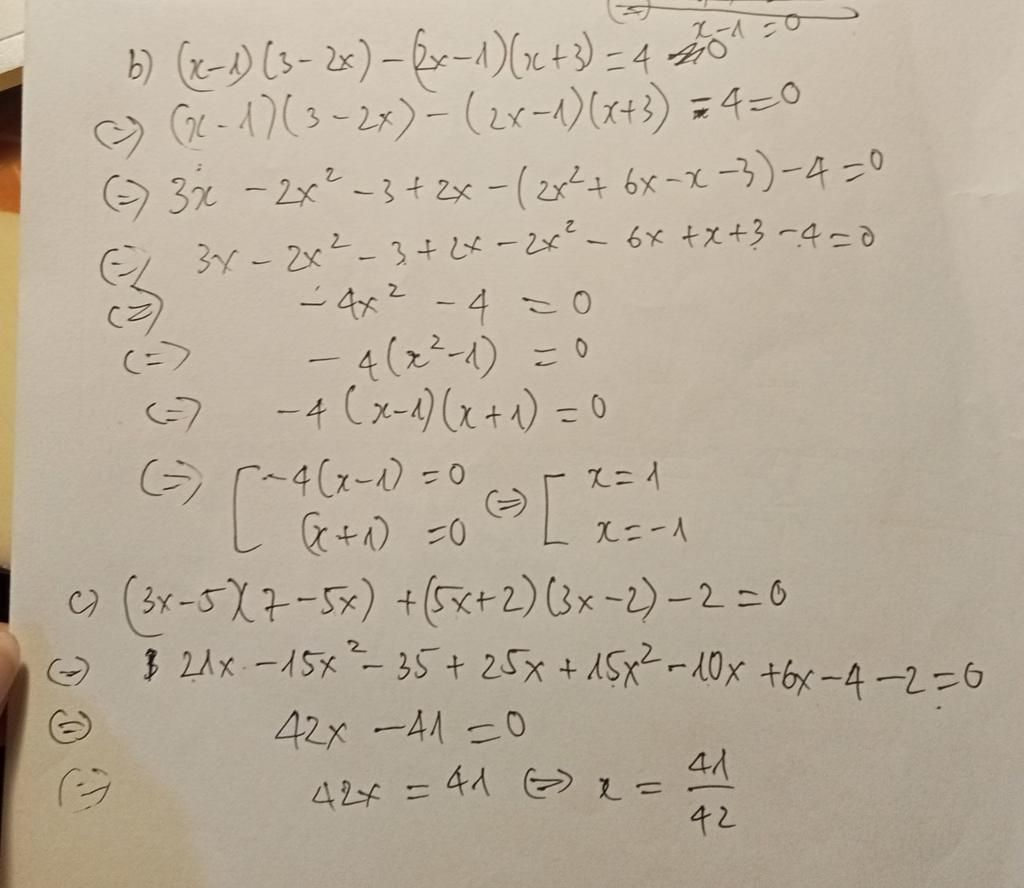 (=)
x-1=0
b) (x-1)(3-2x)-(2x-1)(x+3)=4
(=) (x-1)(3-2x)-(2x-1)(x+3)-4=0
(=) 3x-2x²-3+2x-(2x²+6x-x-3)-4=0
(=) 3x-2x²-3+2x-2x²-6x+x+3-4=0
(=) -4x²-4=0
(=) -4(x²-1)=0
(=) -4(x-1)(x+1)=0
(=) [-4(x-1)=0 (=) [x=1
(x+1)=0 x=-1
c) (3x-5)(7-5x)+(5x+2)(3x-2)-2=0
(=) 21x-15x²-35+25x+15x²-10x+6x-4-2=0
(=) 42x-41=0
(=) 42x=41 (=) x=41/42